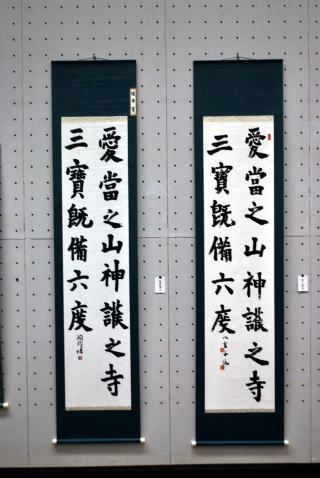 愛當之山神護之寺
三寶既備六度
愛當之山神護之寺
三寶既備六度